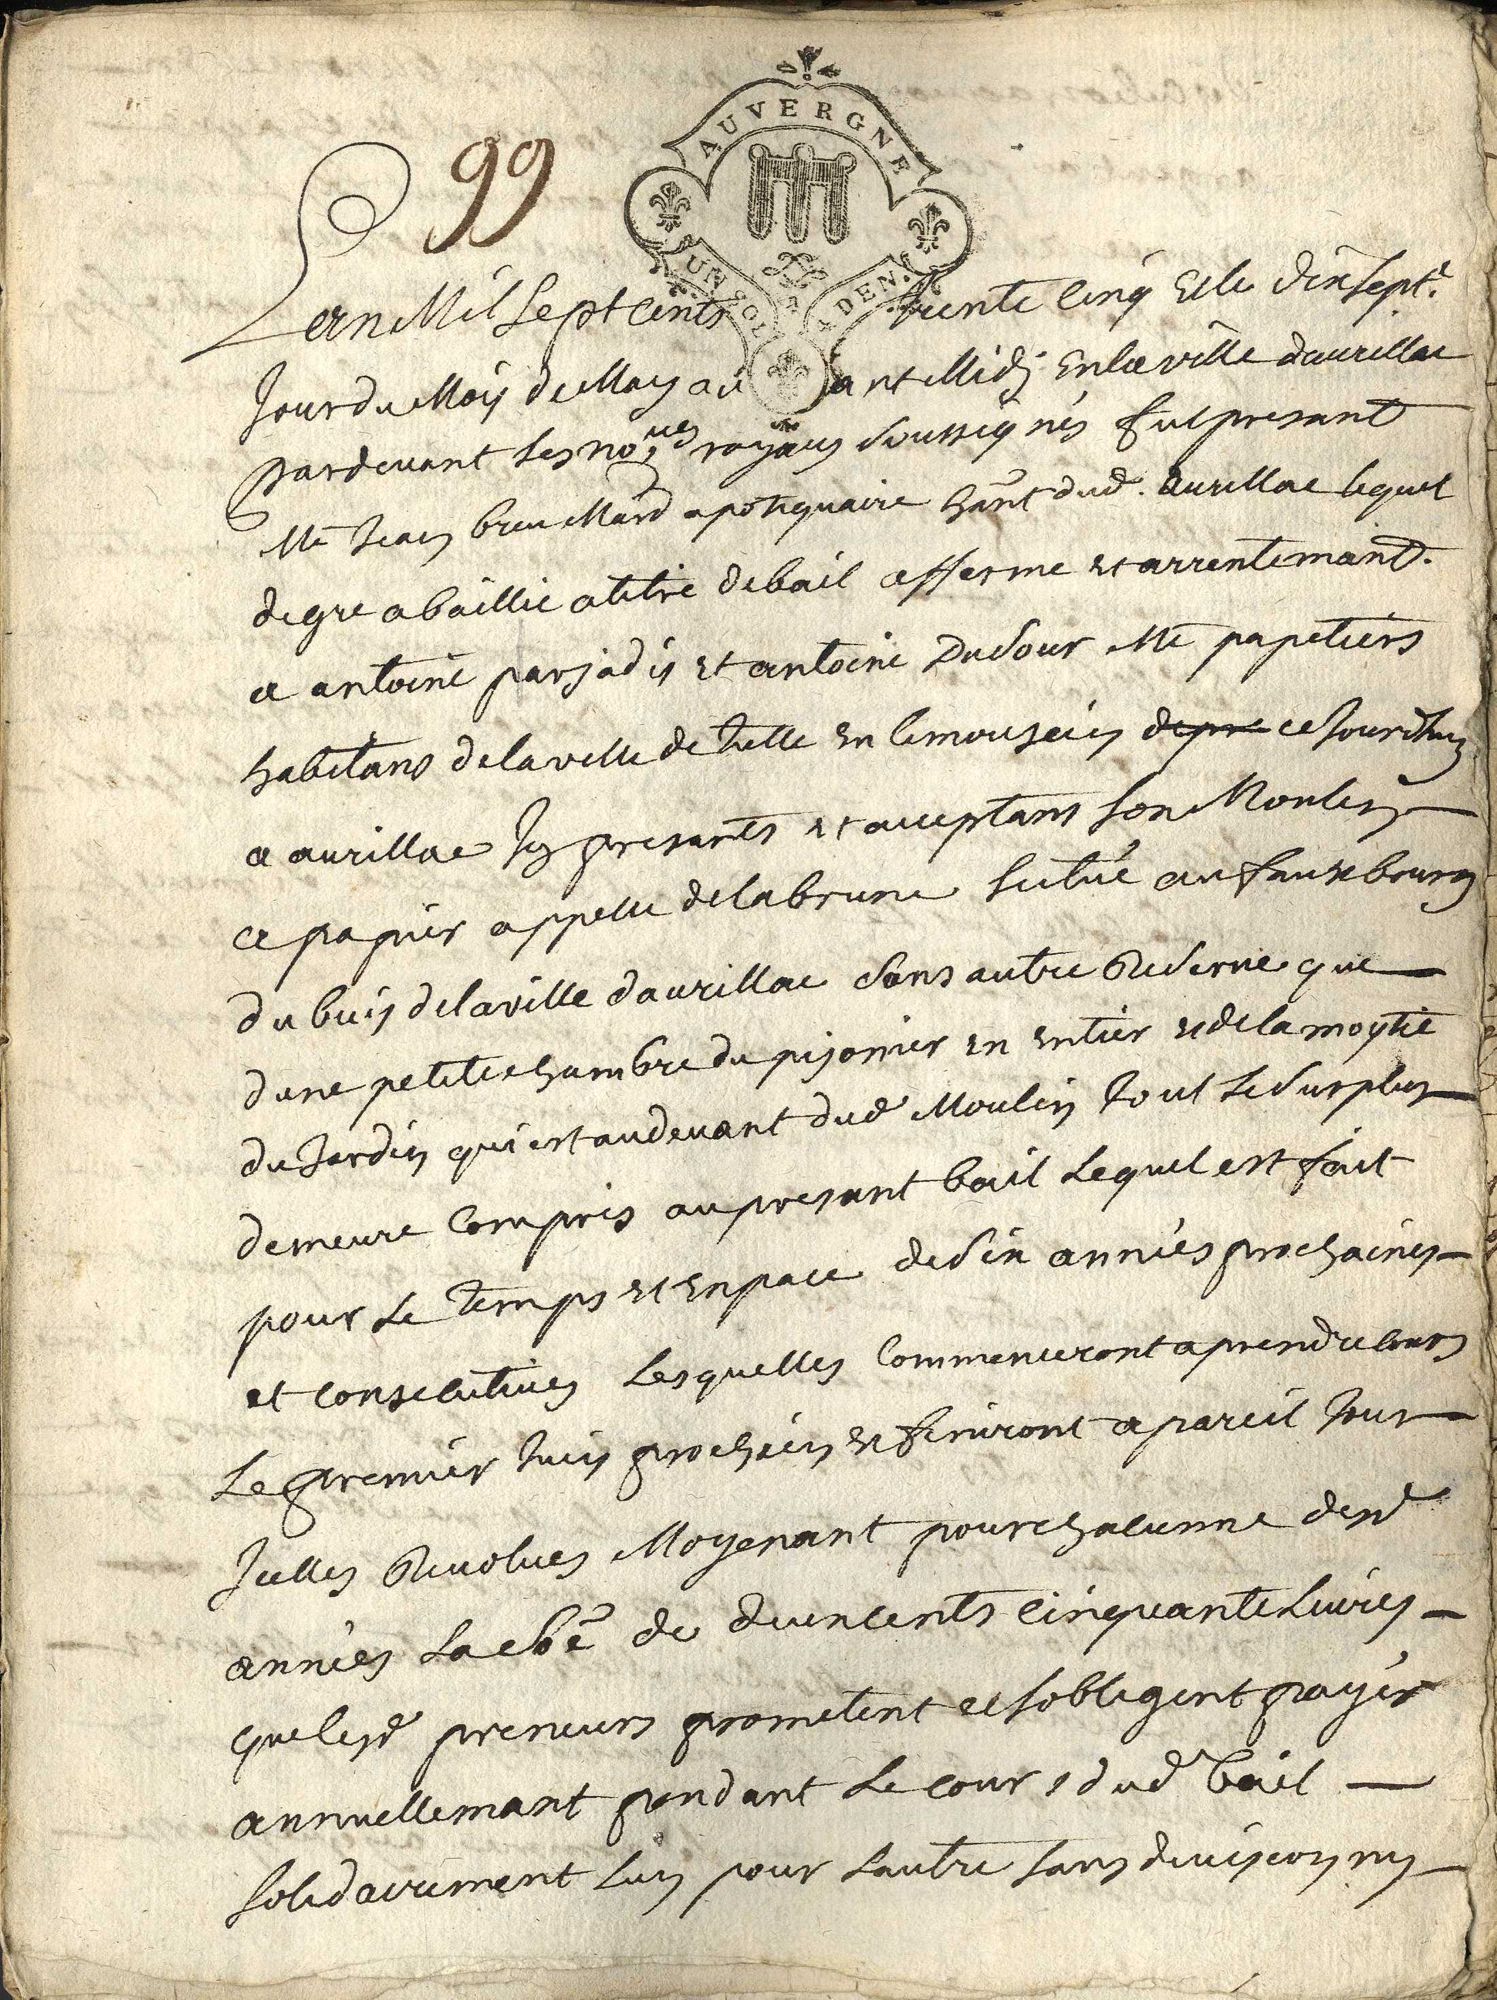 99
AUVERGNE
UN SOL 4 DEN.
Lan Mil Sept Cents trente Cinq et le dix Sept.e
Jour du Mois de May avant Midy en la ville daurillac
pardevant les no.res royaux soussignés fut presant
Me Jean breu Mard apotiquaire hant dud. aurillac lequel
de gre a baillie a titre de bail afferme et arrentemant.
a antoine parjadis et antoine Dufour Me papetiers
habitans de la ville de tulle en limousin ce Jourdhuy
a aurillac Icy presants et acceptans son Moulin
a papier appelle de la brune scitué au fauxbourg
du buis de la ville daurillac sans autre Reserve que
dune petite chambre du pijonier en entier et de la moytie
du Jardin qui est audevant dud Moulin tout le surplus
demeure Compris au presant bail lequel est fait
pour le temps et espace de six années prochaines
et consecutives lesquelles Commenceront a prendre cours
le premier Juin prochain et finiront a pareil Jour
Icelles Revolues Moyenant pour chacunne desd
années la so͞e de deux cents cinquante livres
que lesd preneurs prometent et sobligent payer
annuellemant pendant le cours dud bail
solidairement lun pour lautre sans division ny